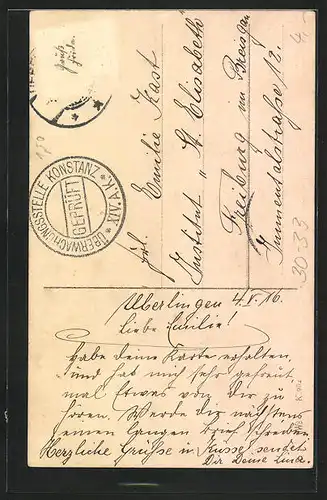 Frl. Emilie Kast
Institut "St. Elisabeth"
Freiburg im Breisgau
Immentalstraße 12.
ÜBERWACHUNGSSTELLE KONSTANZ
XIV. A.K.
GEPRÜFT
Uberlingen 4.V.16.
Liebe Emilie!
habe deine Karte erhalten,
und hat mich sehr gefreut
mal etwas von dir zu
hören. Werde dir nächstens
einen langen Brief schreiben
Herzliche Grüsse u Küsse sendet
Dir Deine Lina.
3033